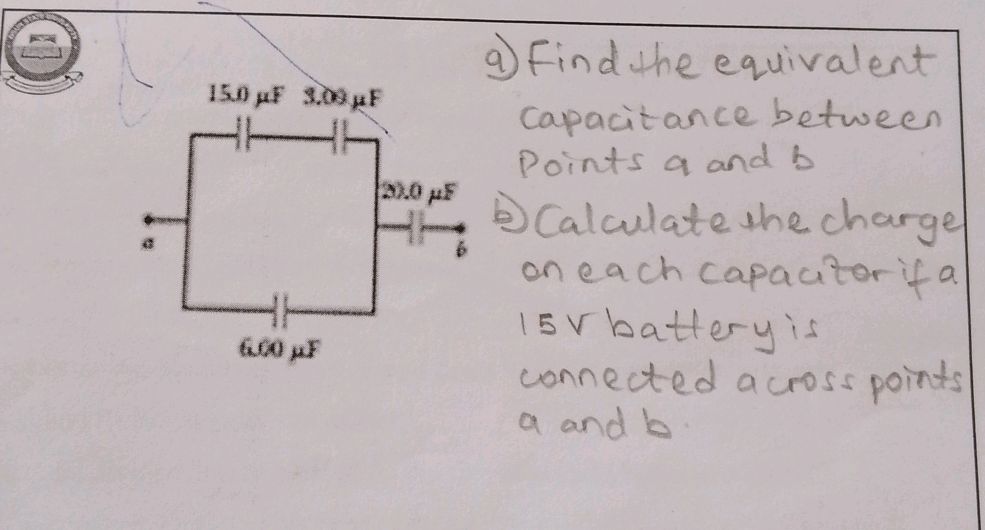 a) Find the equivalent
capacitance between
Points a and b
b) Calculate the charge
on each capacitor if a
15V battery is
connected across points
a and b.
15.0 µF 3.00 µF
20.0 µF
a
b
6.00 µF